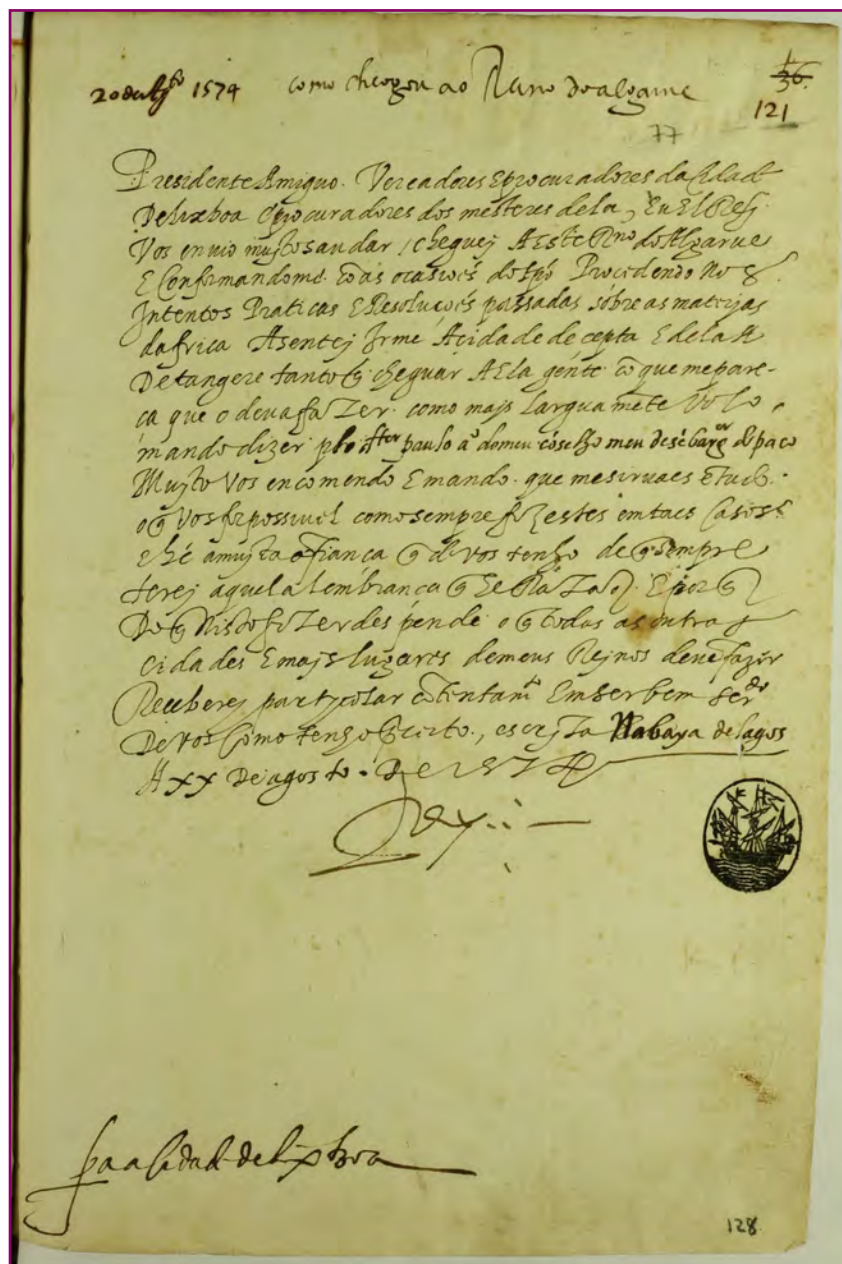 20 de Agto 1574 como cheogou ao Reino do algarue
36.
121
77
Presidente Amiguo. Vereadores E procuradores da Cidade
De lixboa E procuradores dos mesteres dela, Eu El Rej
Vos enuio mujto saudar / cheguej A Este Rno do Algarue
E Confirmandome. cõ as ocasiões do tpõ Procedendo Nos
Intentos Praticas E Resoluções passadas sóbre as materjas
dafrica Asentej Irme A cidade de cepta E dela A
De tangere tanto q̃ cheguár A Ela gente. cõ que me pare-
ça que o deua faZer. como majs Larguamẽte Volo,
mando dizer plo paulo ao do meu cõselho meu desẽbargor do paço
Mujto Vos encomendo E mando. que me siruaes ẽ tudo.
o q̃ Vos for possiuel como sempre fizestes em taes Casos
e hé a mujta cõfiança q̃ de vos tenho de q̃ sempre
terej aquela lembrança q̃ he RaZaõ. E por q̃
Do q̃ Nisto fiZerdes pende o q̃ todas as outras
cidades E majs lugares de meus Rejnos deuẽ fazer
Receberej partycolar cõtentamto Em ser bem serdo
De vos Como tenho Por certo., escrjta Na baya de lagos
A xx De agosto. De 1574
Rey
pa a Cidade de lixboa
128